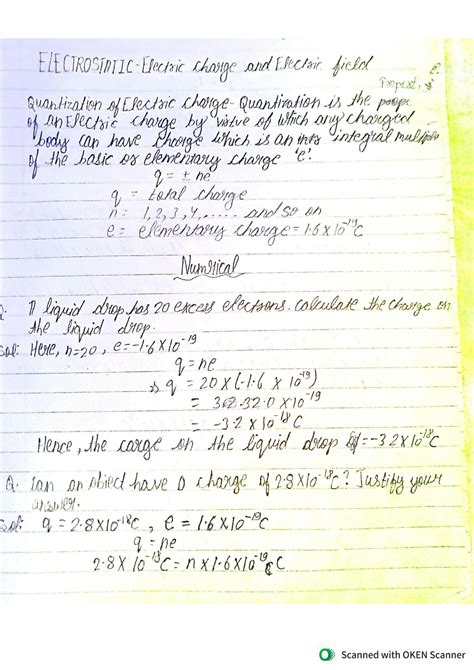 ELECTROSTATIC-Electric charge and Electric field
Propert
Quantization of Electric charge- Quantization is the prope
of an Electric charge by virtue of which any charged
body can have charge which is an inte integral multiple
of the basic or elementary charge 'e'.
q = ± ne
q = total charge
n = 1, 2, 3, 4, ..... and so on
e = elementary charge = 1.6 x 10⁻¹⁹C
Numrical
Q. A liquid drop has 20 excess electrons. Calculate the charge on
the liquid drop.
Sol: Here, n=20, e=-1.6 X 10⁻¹⁹
q = ne
⇒ q = 20 X (-1.6 X 10⁻¹⁹)
= 32.0 X 10⁻¹⁹
= -3.2 X 10⁻¹⁸ C
Hence, the carge on the liquid drop = -3.2 X 10⁻¹⁸C
Q. Can an object have a charge of 2.8 X 10⁻¹⁸C? Justify your
answer.
Sol: q = 2.8 X 10⁻¹⁸C, e = 1.6 X 10⁻¹⁹C
q = ne
2.8 X 10⁻¹⁸C = n X 1.6 X 10⁻¹⁹ C
Scanned with OKEN Scanner